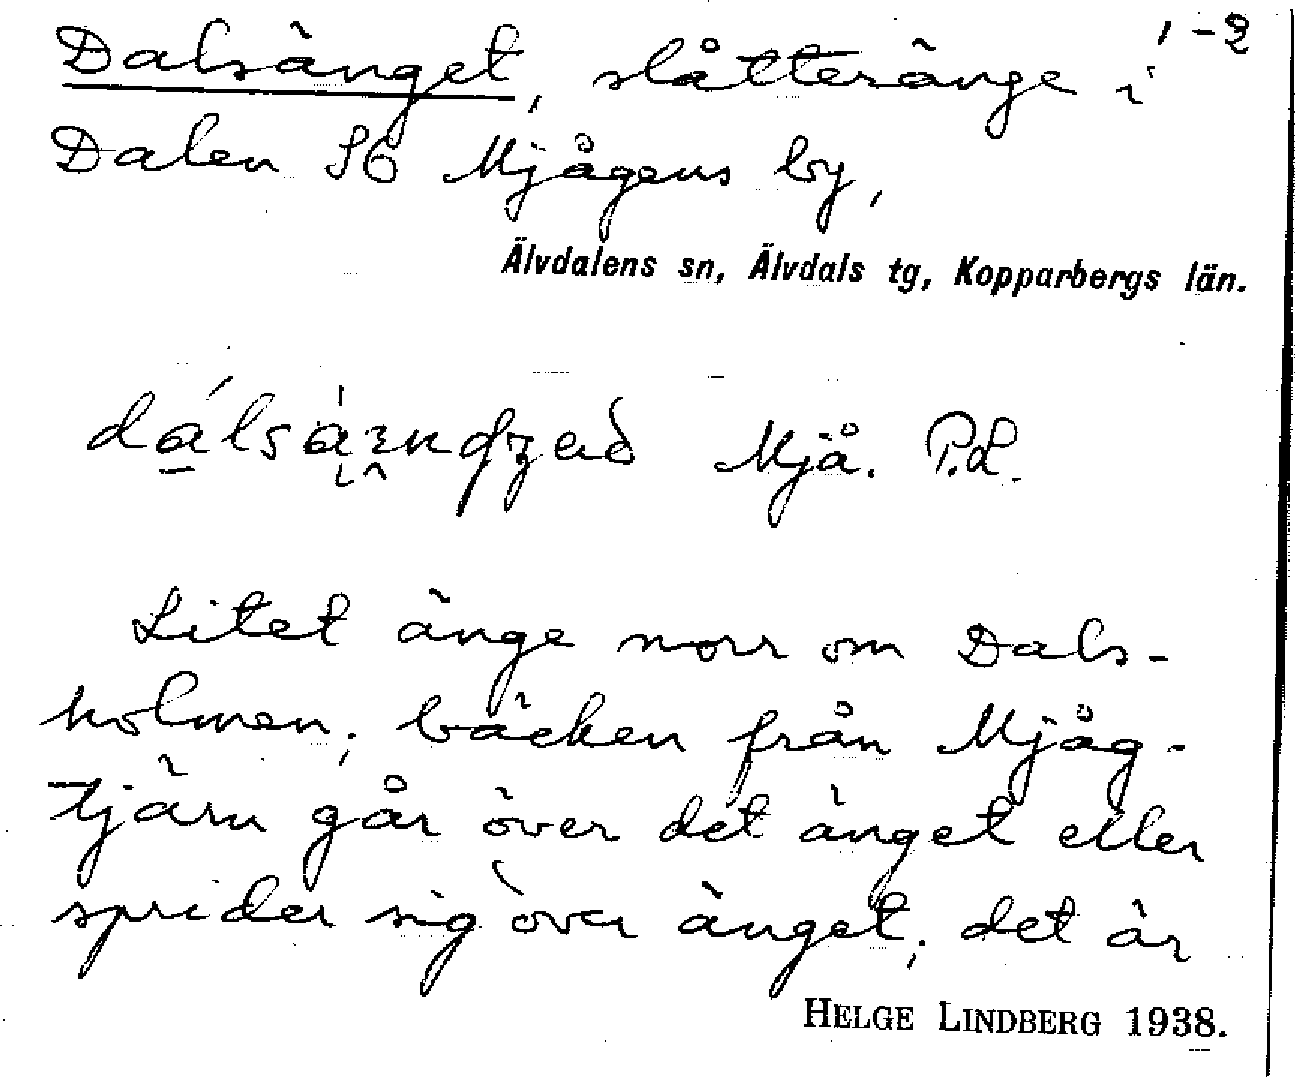 1-2
Dalsänget, slåtteränge i
Dalen S6 Mjågens by,
Älvdalens sn, Älvdals tg, Kopparbergs län.
Mjå. P.L.
Litet änge norr om Dals-
holmen; bäcken från Mjåg-
tjärn går över det änget eller
sprider sig över änget; det är
HELGE LINDBERG 1938.